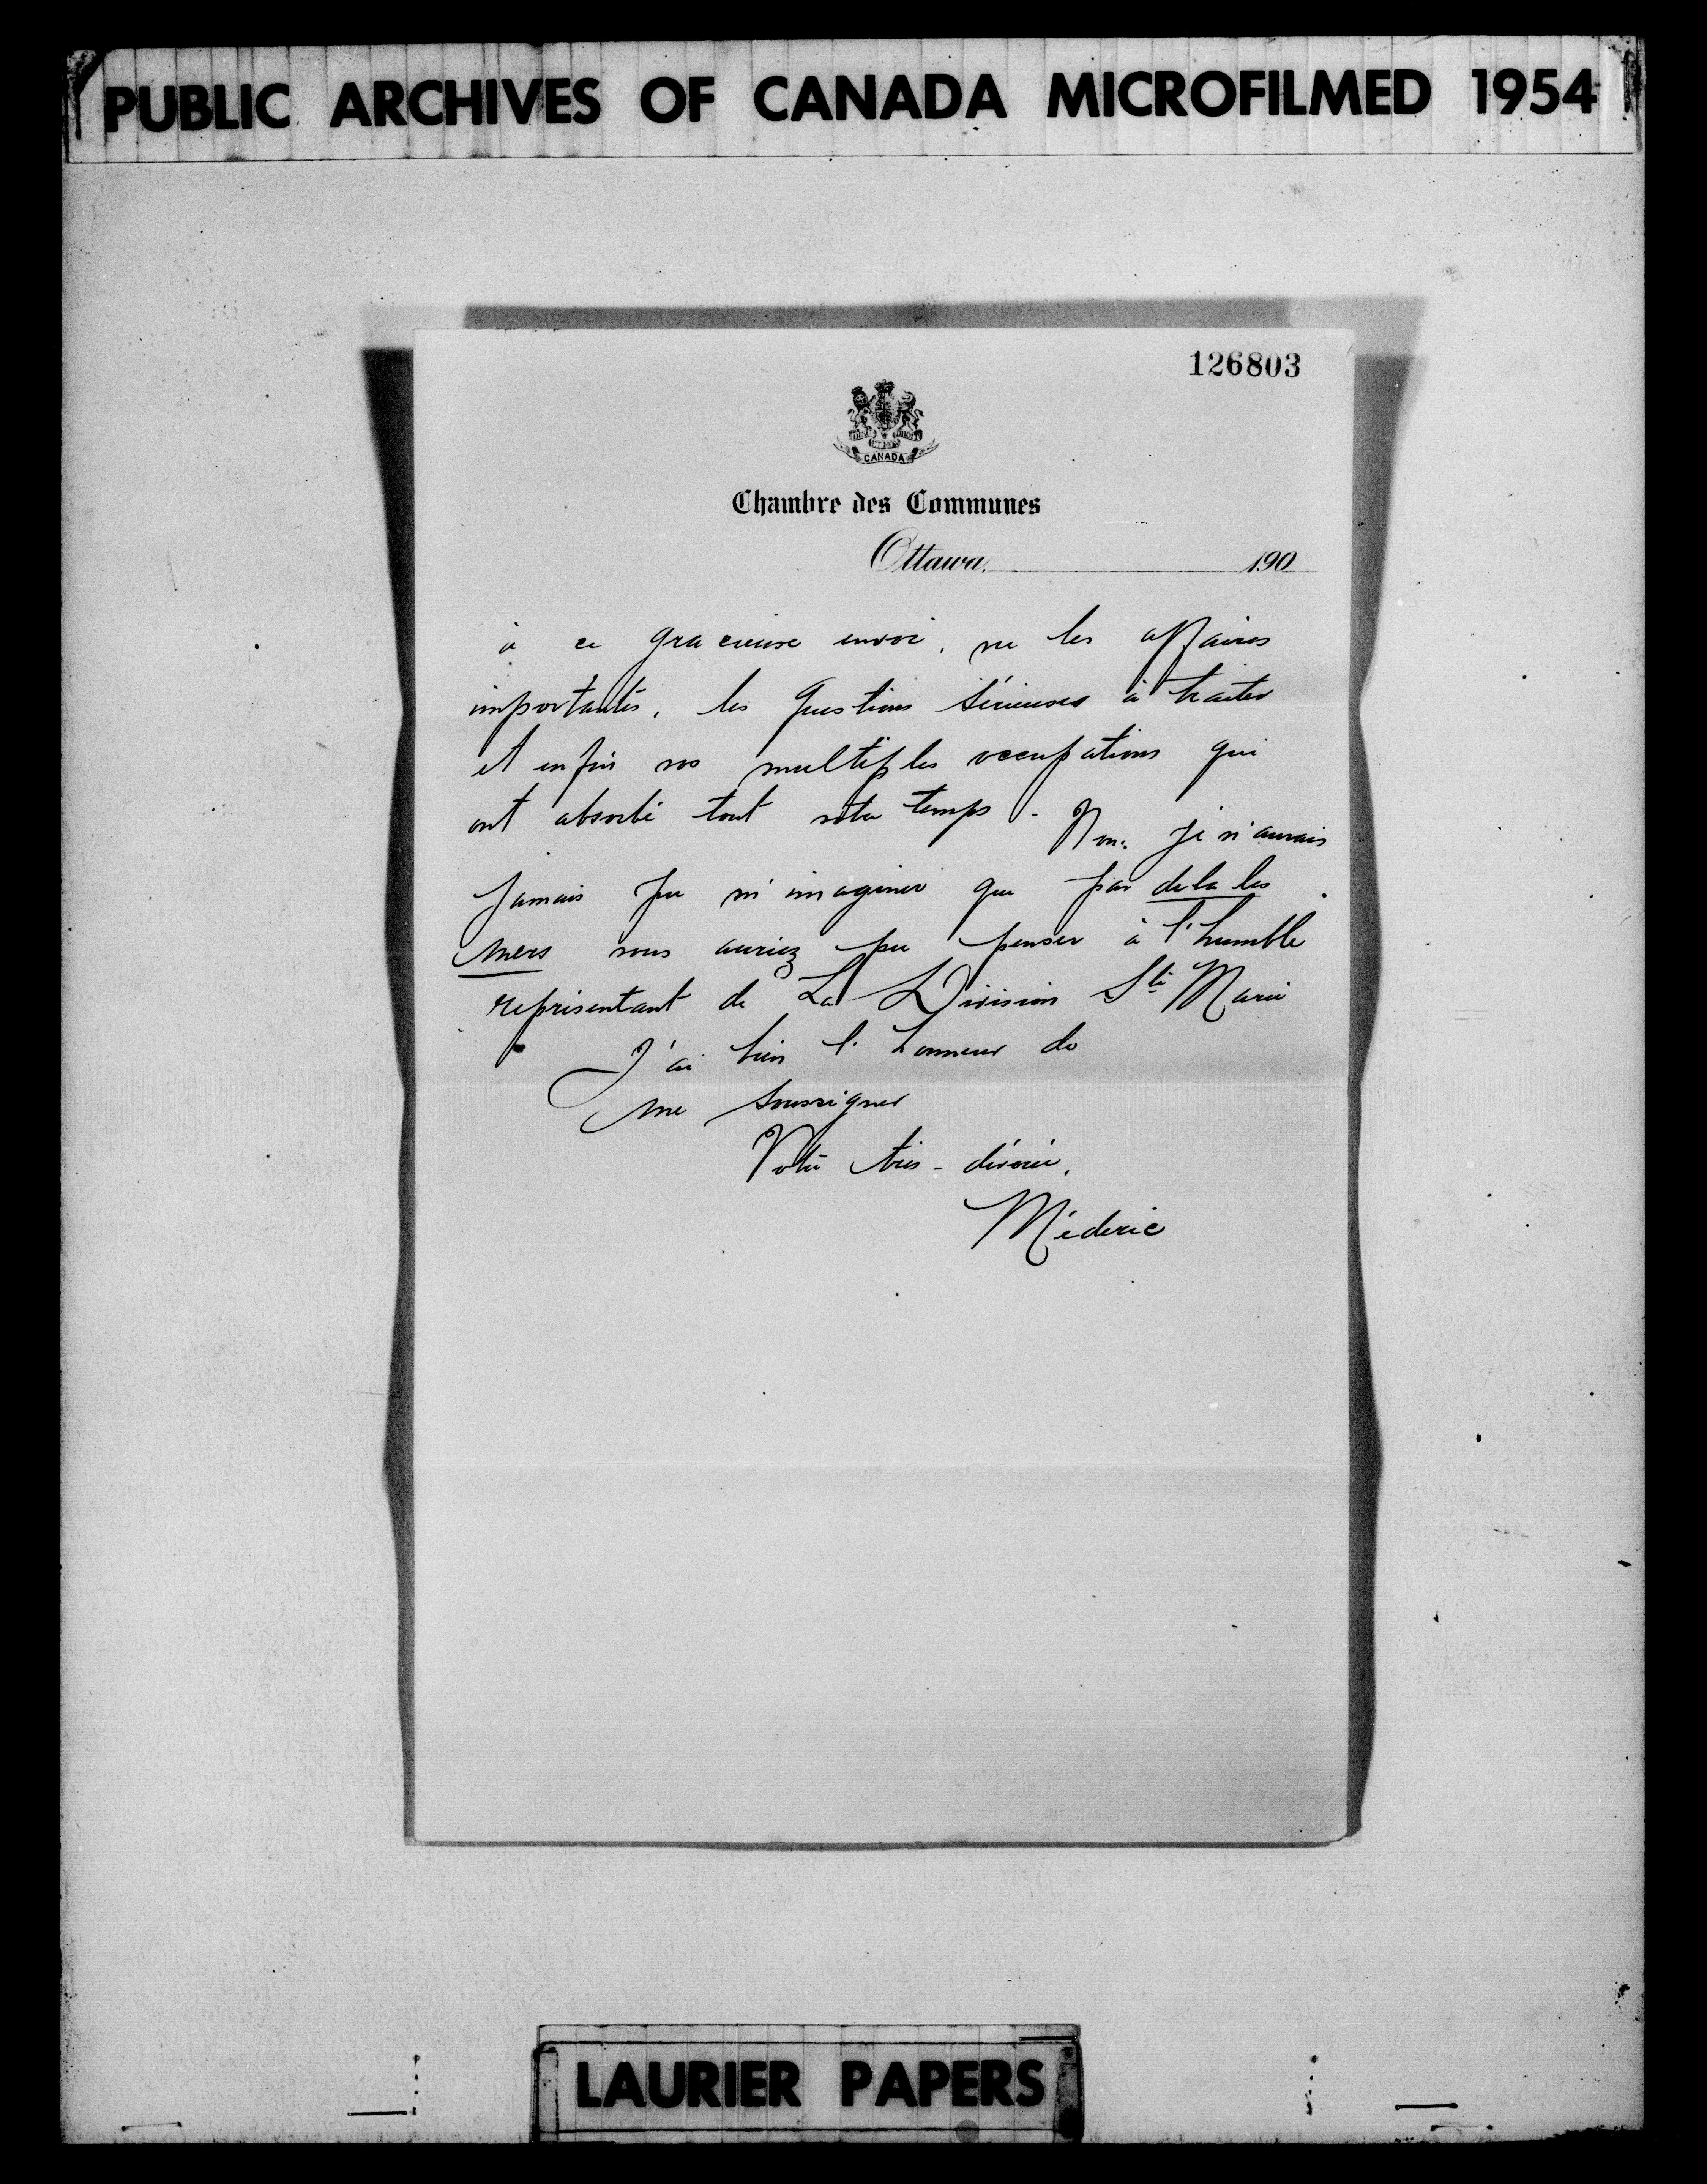 PUBLIC ARCHIVES OF CANADA MICROFILMED 1954
126803
CANADA
Chambre des Communes
Ottawa, 190
à ce gracieuse envoi, vu les affaires
importantes, les questions sérieuses à traiter
et enfin vos multiples occupations qui
ont absorbé tout votre temps. Non. Je n'aurais
Jamais pu m'imaginer que par dela les
mers vous auriez pu penser à l'humble
représentant de La Division Ste Marie
J'ai bien l'honneur de
me soussigner
Votre très-dévoué,
Médéric
LAURIER PAPERS